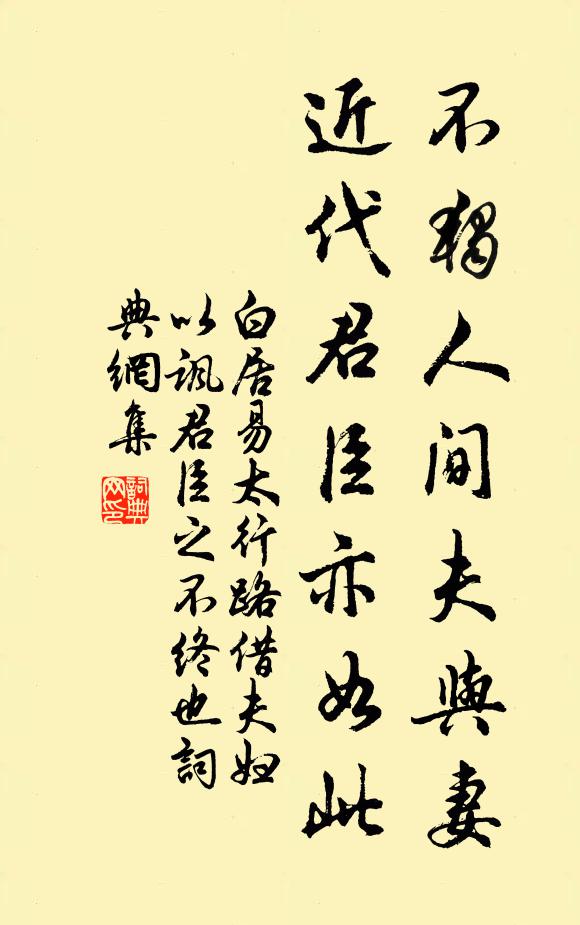 不獨人間夫與妻
近代君臣亦如此
白居易太行路借夫婦
以諷君臣之不終也詞
典網集
詞典
网印